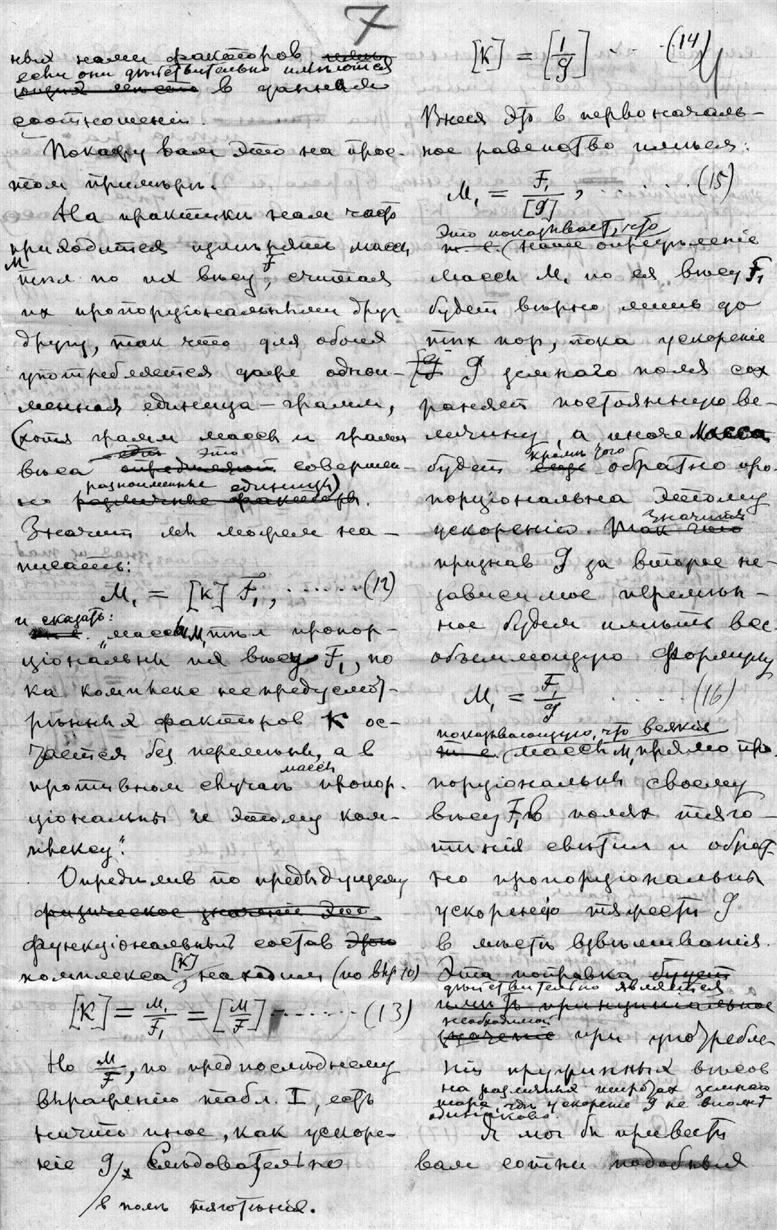 7
ныхъ нами факторовъ
если они действительно имѣются
въ данномъ
соотношеніи.
Покажу вамъ это на прос-
томъ примѣрѣ.
На практикѣ намъ часто
приходится измѣрять массы
M
тѣлъ по ихъ вѣсу F, считая
ихъ пропорціональными другъ
другу, такъ что для обоихъ
употребляется даже однои-
менная единица – граммъ,
(хотя граммъ массы и граммъ
это
вѣса совершен-
разноименные единицы)
но
Значитъ мы можемъ на-
писать:
M₁ = [K] F₁, ······ (12)
и сказать:
„массы M₁ тѣлъ пропор-
ціональны ихъ вѣсу F₁, по
ка комплексъ непредусмот-
рѣнныхъ факторовъ K ос-
тается безъ перемѣны, а въ
массы
противномъ случаѣ пропор-
ціональны и этому ком-
плексу“.
Опредѣливъ по предыдущему
физическое значеніе
функціональный составъ
комплекса [K], находимъ (по выр 10)
[K] = M₁/F₁ = [M/F] ······ (13)
Но M/F, по предпослѣднему
выраженію табл. I, есть
ничто иное, какъ ускоре-
ніе g Слѣдовательно
въ полѣ тяготѣнія.
[K] = [1/g] ·· ·(14)
Внеся это въ первоначаль-
ное равенство имѣемъ:
M₁ = F₁/[g], ······ (15)
Это показываетъ, что
т. е. (наше опредѣленіе
массы M₁ по ея вѣсу F₁
будетъ вѣрно лишь до
тѣхъ поръ, пока ускореніе
g земного поля сох
раняетъ постоянную ве-
личину, а иначе масса
кромѣ того
будетъ обратно про-
порціональна этому
Значитъ
ускоренію. Такъ что
признавъ g за второе не-
зависимое перемѣн-
ное будемъ имѣть все-
объемлющую формулу
M₁ = F₁/g ····· (16)
показывающую, что всякія
т. е. (массы M₁ прямо про
порціональны своему
вѣсу F₁ въ поляхъ тяго-
тѣнія свѣтилъ и обрат-
но пропорціональны
ускоренію тяжести g
въ мѣстѣ взвѣшиванія.
Эта поправка будетъ
дѣйствительно является
имѣть принципіальное
необходимой
значеніе при употребле-
ніи пружинныхъ вѣсовъ
на различныхъ широтахъ земного
шара, гдѣ ускореніе g не вполнѣ
одинаково.
Я могъ бы привести
вамъ сотни подобныхъ